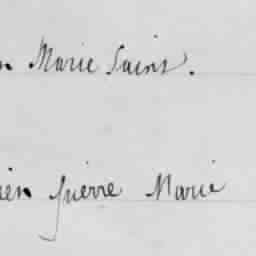 n Marie Saint.
ien pierre Marie